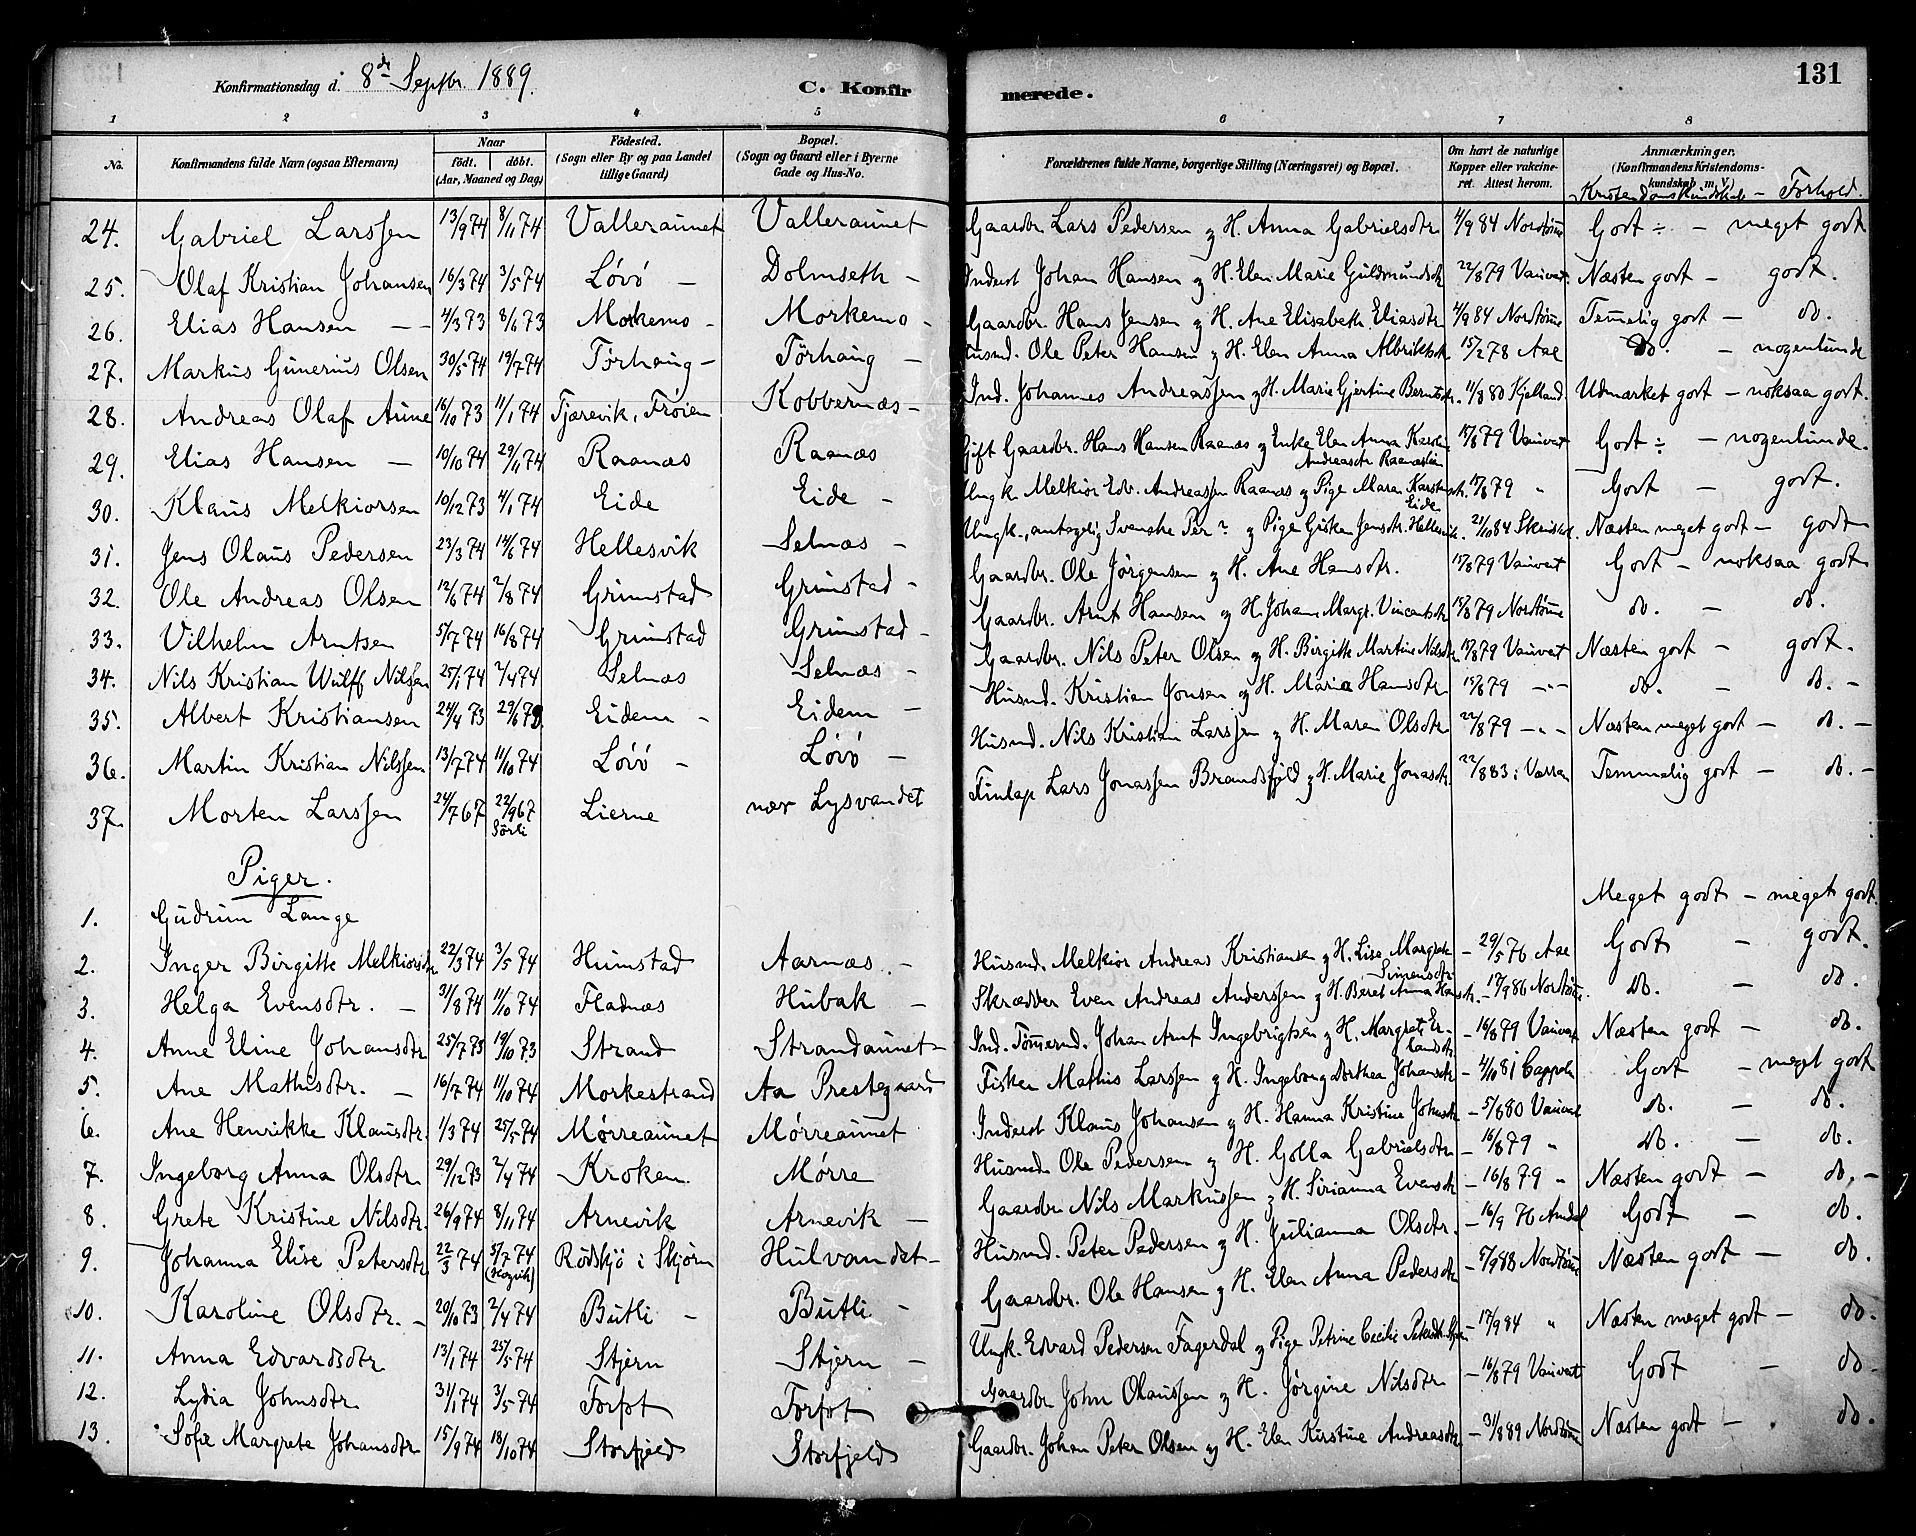 Konfirmationsdag d. 8de Septbr. 1889.
C. Konfirmerede.
131
1 2 3 4 5 6 7 8
No. Konfirmandens fulde Navn (ogsaa Efternavn) Naar født. døbt. (Aar, Maaned og Dag) Fødested. (Sogn eller By og paa Landet tillige Gaard) Bopæl. (Sogn og Gaard eller i Byerne Gade og Hus-No. Forældrenes fulde Navne, borgerlige Stilling (Næringsvei) og Bopæl. Om havt de naturlige Kopper eller vakcineret. Attest herom. Anmærkninger. (Konfirmandens Kristendomskundskab m. V.)
Kristendomskundskab - Forhold.
24. Gabriel Larssen 13/9 74 8/11 74 Valleraunet Valleraunet Gaardbr. Lars Pedersen og H. Anna Gabrielsdtr 4/9 84 Nordtømme Godt - meget godt
25. Olaf Kristian Johansen 16/3 74 3/5 74 Løvø - Dolmseth - Inderst Johan Hansen og H. Elen Marie Guldmundsdtr 22/8 79 Vauvert Næsten godt - godt.
26. Elias Hansen - - 4/3 73 8/6 73 Morkemo - Morkemo - Gaardbr. Hans Jensen og H. Ane Elisabeth Eliasdtr 4/9 84 Nordtømme Temmelig godt - do.
27. Markus Gunerius Olsen 30/5 74 19/7 74 Tørhaug - Tørhaug - Husmd. Ole Peter Hansen og H. Elen Anna Albriktsdtr 15/2 78 Aae do. - nogenlunde
28. Andreas Olaf Aune 16/10 73 11/1 74 Tjarevik, Frøien Kobbernæs - Ind. Johannes Andreassen og H. Marie Gjertine Berntsdtr. 11/8 80 Kjelland. Udmærket godt - noksaa godt.
29. Elias Hansen - 10/10 74 29/11 74 Raanæs Raanæs Gift Gaardbr. Hans Hansen Raanæs og Enke Elen Anna Karoline Andreasdtr Raanæslien 15/8 79 Vauvert Godt - nogenlunde.
30. Klaus Melkiorsen 10/12 73 4/1 74 Eide Eide - Ungk. Melkior Edv. Andreassen Raanæs og Pige Maren Karstensdtr. Eide 15/8 79 " Godt - godt.
31. Jens Olaus Pedersen 23/3 74 14/6 74 Hellesvik Selnæs - Ungk., antagelig Svenske Per? og Pige Gisken Jensdtr. Hellesvik. 21/10 84 Næsten meget godt - godt
32. Ole Andreas Olsen 12/6 74 2/8 74 Grimstad Grimstad - Gaardbr. Ole Jørgensen og H. Ane Hansdtr. 15/8 79 Vauvert Godt - noksaa godt
33. Vilhelm Arntsen 5/7 74 16/8 74 Grimstad Grimstad - Gaardbr. Arnt Hansen og H. Johan. Margr. Vincentsdtr 15/8 79 Nordtømme do. - do.
34. Nils Kristian Wulff Nilssen 25/1 74 2/4 74 Selnæs Selnæs - Gaardbr. Nils Peter Olsen og H. Birgitte Martine Nilsdtr 15/8 79 Vauvert Næsten godt - godt.
35. Albert Kristiansen 24/4 73 29/6 73 Eidem - Eidem - Husmd. Kristian Jonsen og H. Maria Hansdtr 15/8 79 - " - do. - do. -
36. Martin Kristian Nilssen 13/7 74 11/10 74 Løvø - Løvø - Husmd. Nils Kristian Larssen og H. Maren Olsdtr 22/8 79 - " - Næsten meget godt - do. -
37. Morten Larssen 24/7 67 22/9 67 Sørli Lierne nær Lysvandet Finlap Lars Jonassen Brandsfjeld og H. Marie Jonasdtr 22/8 83 i Værran Temmelig godt - do. -
Piger.
1. Gudrun Lange Meget godt - meget godt.
2. Inger Birgitte Melkiorsdtr 22/3 74 3/5 74 Humstad Aarnæs - Husmd. Melkior Andreas Kristiansen og H. Lise Margrete Simensdtr - 29/5 76 Aae Godt - godt.
3. Helga Evensdtr. - 31/8 74 11/10 74 Fladnæs Hubak - Skrædder Even Andreas Anderssen og H. Beret Anna Hansdtr. - 17/9 86 Nordtømme. do. - do.
4. Anne Eline Johansdtr 25/7 73 19/10 73 Strand Strandaunet - Ind. Tømmermd. Johan Arnt Ingebrigtsen og H. Margrete Erlandsdtr - 16/8 79 Vauvert Næsten godt - do.
5. Ane Mathisdtr. - 16/7 74 11/10 74 Morkestrand Aa Prestegaard Fisker Mathis Larssen og H. Ingeborg Dorthea Johansdtr - 4/10 81 Cappelen Godt - meget godt
6. Ane Henrikke Klausdtr. 1/3 74 25/5 74 Mørreaunet Mørreaunet Inderst Klaus Johansen og H. Hanna Kristine Johnsdtr - 5/8 80 Vauvert do. - do.
7. Ingeborg Anna Olsdtr 29/12 73 2/4 74 Kroken. Mørre Husmd. Ole Pedersen og H. Golla Gabrielsdtr - 16/8 79 " do. - do.
8. Grete Kristine Nilsdtr. 26/9 74 8/11 74 Arnevik Arnevik - Gaardbr Nils Markussen og H. Sirianna Evensdtr - 16/8 79 " Næsten godt - do. -
9. Johanna Elise Petersdtr 22/3 74 5/7 74 Rødsjø i Skjørn Hulvandet - Husmd. Peter Pedersen og H. Julianna Olsdtr. - 16/9 76 Godt - do.
10. Karoline Olsdtr. - 20/10 73 2/4 74 Butli - Butli - Gaardbr. Ole Hansen og H. Elen Anna Pedersdtr - 5/9 88 Nordtømme Næsten godt - do.
11. Anna Edvardsdtr 13/1 74 25/5 74 Stjern Stjern - Ungk. Edvard Pedersen Fagerdal og Pige Petrine Cecilie Petersdtr - 17/9 84 " Næsten meget godt - do.
12. Lydia Johnsdtr 31/1 74 3/5 74 Forfot Forfot Gaardbr John Olaussen og H. Jørgine Nilsdtr - 16/8 79 Vauvert Godt - do -
13. Sofie Margrete Johansdtr 15/9 74 18/10 74 Storfjeld Storfjeld Gaardbr. Johan Peter Olsen og H. Elen Kirstine Andreasdtr - 31/8 89 Nordtømme Næsten godt - do.